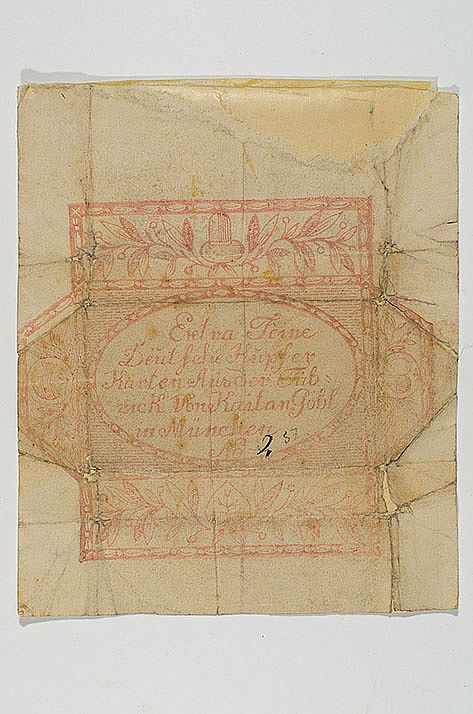 Extra Feine
Deutsche Kupfer
Karten Aus der Fab=
rick Von Kaitan Göbl
in München
No 2